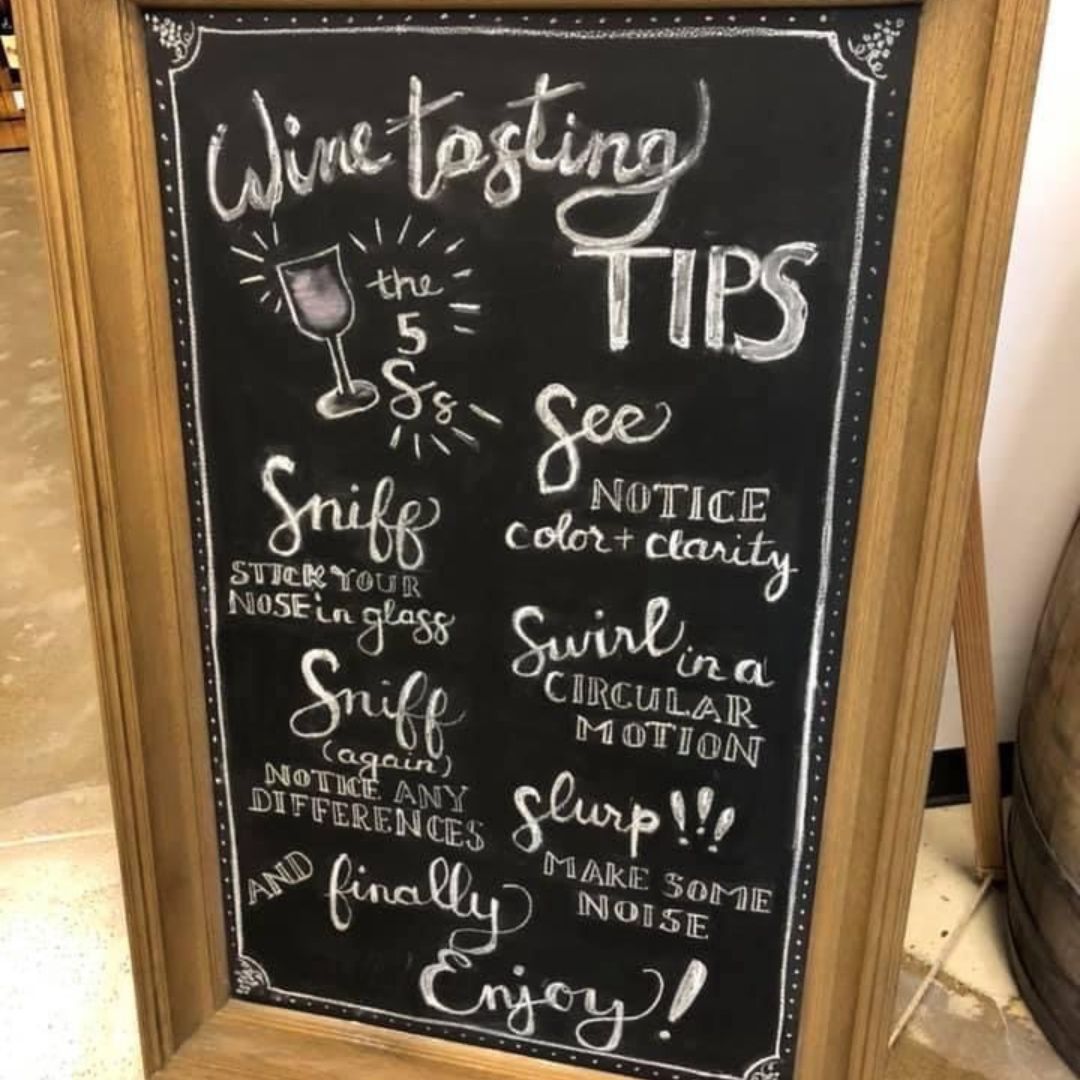 Wine tasting
TIPS
the
5
Ss
See
NOTICE
color + clarity
Sniff
STICK YOUR
NOSE in glass
Swirl in a
CIRCULAR
MOTION
Sniff
(again)
NOTICE ANY
DIFFERENCES
Slurp!!!
MAKE SOME
NOISE
AND finally
Enjoy!